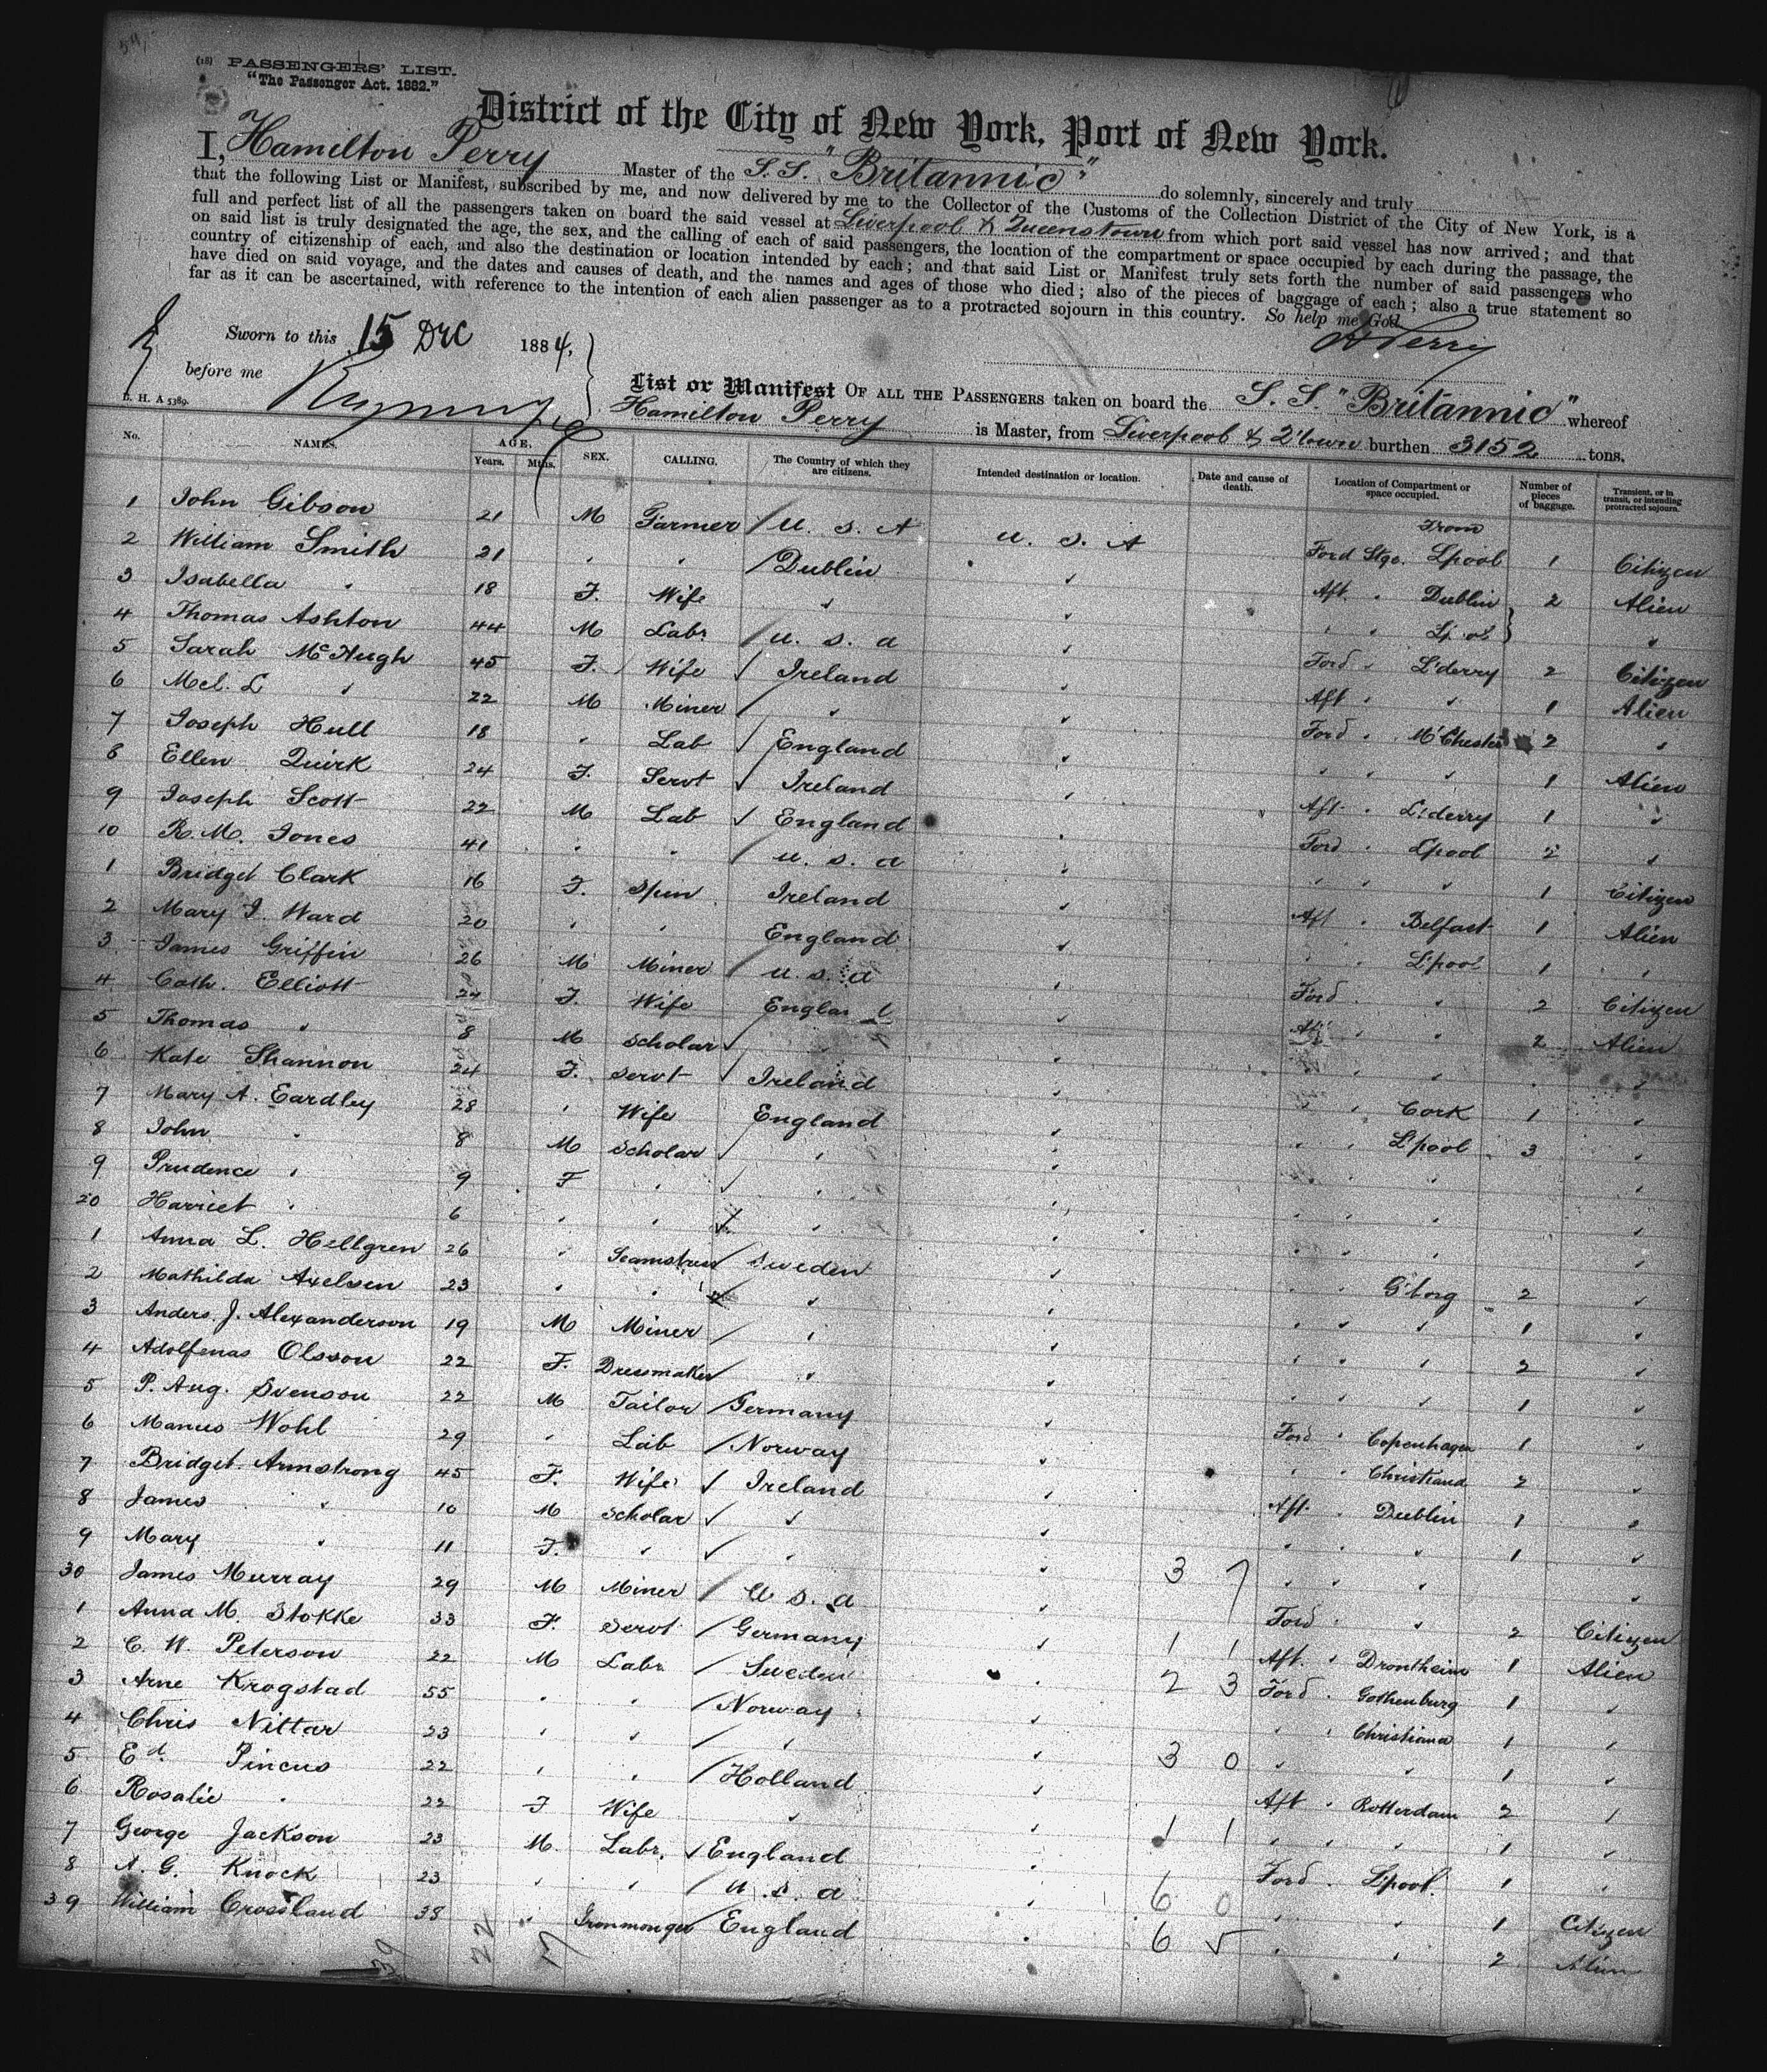 (18) PASSENGERS' LIST.
"The Passenger Act. 1882."
District of the City of New York, Port of New York.
I, Hamilton Perry Master of the S.S. "Britannic" do solemnly, sincerely and truly
that the following List or Manifest, subscribed by me, and now delivered by me to the Collector of the Customs of the Collection District of the City of New York, is a
full and perfect list of all the passengers taken on board the said vessel at Liverpool & Queenstown from which port said vessel has now arrived; and that
on said list is truly designated the age, the sex, and the calling of each of said passengers, the location of the compartment or space occupied by each during the passage, the
country of citizenship of each, and also the destination or location intended by each; and that said List or Manifest truly sets forth the number of said passengers who
have died on said voyage, and the dates and causes of death, and the names and ages of those who died; also of the pieces of baggage of each; also a true statement so
far as it can be ascertained, with reference to the intention of each alien passenger as to a protracted sojourn in this country. So help me God.
H Perry
Sworn to this 15 Dec 1884,
before me
E. H. A 5389.
List or Manifest OF ALL THE PASSENGERS taken on board the S.S. "Britannic" whereof
Hamilton Perry is Master, from Liverpool & Q'town burthen 3152 tons.
No. NAMES. AGE. Years. Mths. SEX. CALLING. The Country of which they are citizens. Intended destination or location. Date and cause of death. Location of Compartment or space occupied. Number of pieces of baggage. Transient, or in transit, or intending protracted sojourn.
From
1 John Gibson 21 M Farmer U.S.A U.S.A Ford Stge. Lpool 1 Citizen
2 William Smith 21 " " Dublin " Aft " Dublin 2 Alien
3 Isabella " 18 F. Wife " " " " Lpool "
4 Thomas Ashton 44 M Labr U.S.a " Ford " L'derry 2 Citizen
5 Sarah McHugh 45 F. Wife Ireland " Aft " " 1 Alien
6 Mcl. L " 22 M Miner " " Ford " M'Chester 2 "
7 Joseph Hull 18 " Lab England " " " " 1 Alien
8 Ellen Quirk 24 F. Servt Ireland " Aft " L'derry 1 "
9 Joseph Scott 22 M Lab England " Ford " Lpool 2 "
10 R. M. Jones 41 " " U.S.a " " " " 1 Citizen
1 Bridget Clark 16 F. Spin Ireland " Aft " Belfast 1 Alien
2 Mary J. Ward 20 " " England " " " L'pool 1 "
3 James Griffin 26 M Miner U.S.a " Ford " " 2 Citizen
4 Cath. Elliott 24 F. Wife England " Aft " " 2 Alien
5 Thomas " 8 M Scholar " " " " " "
6 Kate Shannon 24 F. Servt Ireland " " " Cork 1 "
7 Mary A. Eardley 28 " Wife England " " " L'pool 3 "
8 John " 8 M Scholar " " " " " "
9 Prudence " 9 F " " " " " " "
20 Harriet " 6 " " " " " " " "
1 Anna L. Hellgren 26 " Seamstress Sweden " " " G'borg 2 "
2 Mathilda Axelsen 23 " " " " " " " 1 "
3 Anders. J. Alexanderson 19 M Miner " " " " " 2 "
4 Adolfenas Olsson 22 F. Dressmaker " " " " " 1 "
5 P. Aug. Svenson 22 M Tailor Germany " Ford " Copenhagen 1 "
6 Manus Wohl 29 " Lab Norway " " " Christiana 2 "
7 Bridget Armstrong 45 F. Wife Ireland " Aft. " Dublin 1 "
8 James " 10 M Scholar " " " " " 1 "
9 Mary " 11 F. " " " 3 7 " " " "
30 James Murray 29 M Miner U.S.a " Ford " " 2 Citizen
1 Anna M. Stokke 33 F. Servt Germany " 1 1 Aft. " Drontheim 1 Alien
2 C. W. Peterson 22 M Labr Sweden " 2 3 Ford " Gothenburg 1 "
3 Arne Krogstad 55 " " Norway " " " Christiana 1 "
4 Chris Nittar 23 " " " " 3 0 " " 1 "
5 Ed. Pincus 22 " " Holland " Aft " Rotterdam 2 "
6 Rosalie " 22 F Wife " " 1 1 " " " 1 "
7 George Jackson 23 M Labr. England " Ford " Lpool. 1 "
8 A. G. Knock 23 " " U.S.a " 6 0 " " 1 Citizen
39 William Crossland 38 " Ironmonger England " 6 5 " " 2 Alien
39 22 17